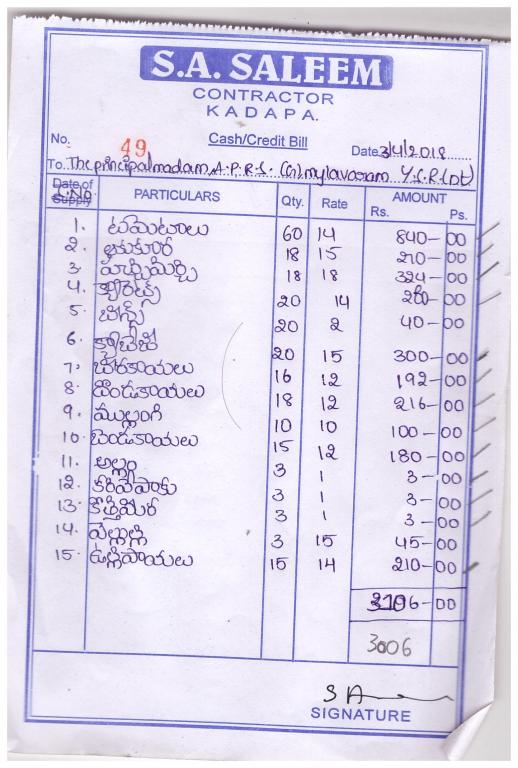 S.A. SALEEM
CONTRACTOR
KADAPA.
Cash/Credit Bill
No. 49 Date 3/4/2018
To. The principal madam, A.P.R.S. (G) mylavaram Y.S.R (Dt)
Date of Supply S.No PARTICULARS Qty. Rate AMOUNT Rs. Ps.
1. టమేటాలు 60 14 840-00
2. ఆకుకూర 18 15 270-00
3. పచ్చిమిర్చి 18 18 324-00
4. క్యారెట్స్ 20 14 280-00
5. బీన్స్ 20 2 40-00
6. క్యాబేజి 20 15 300-00
7. బీరకాయలు 16 12 192-00
8. దొండకాయలు 18 12 216-00
9. ముల్లంగి 10 10 100-00
10. బెండకాయలు 15 12 180-00
11. అల్లం 3 1 3-00
12. కరివేపాకు 3 1 3-00
13. కొత్తిమీర 3 1 3-00
14. వెల్లుల్లి 3 15 45-00
15. ఉల్లిపాయలు 15 14 210-00
-00
3006
SA
SIGNATURE